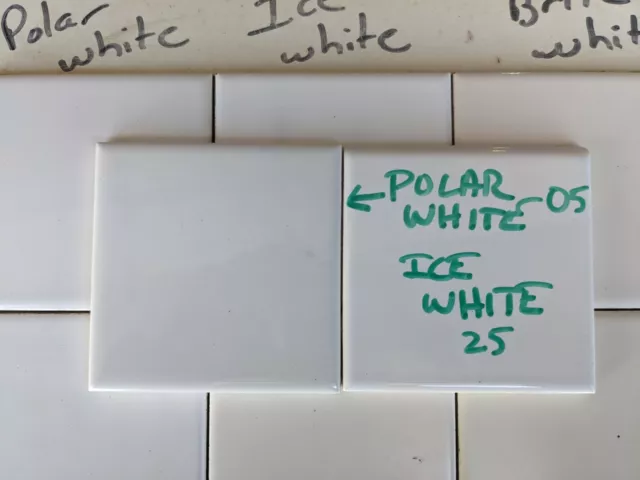 Polar
white
Ice
white
whit
← POLAR
WHITE - 05
ICE
WHITE
25